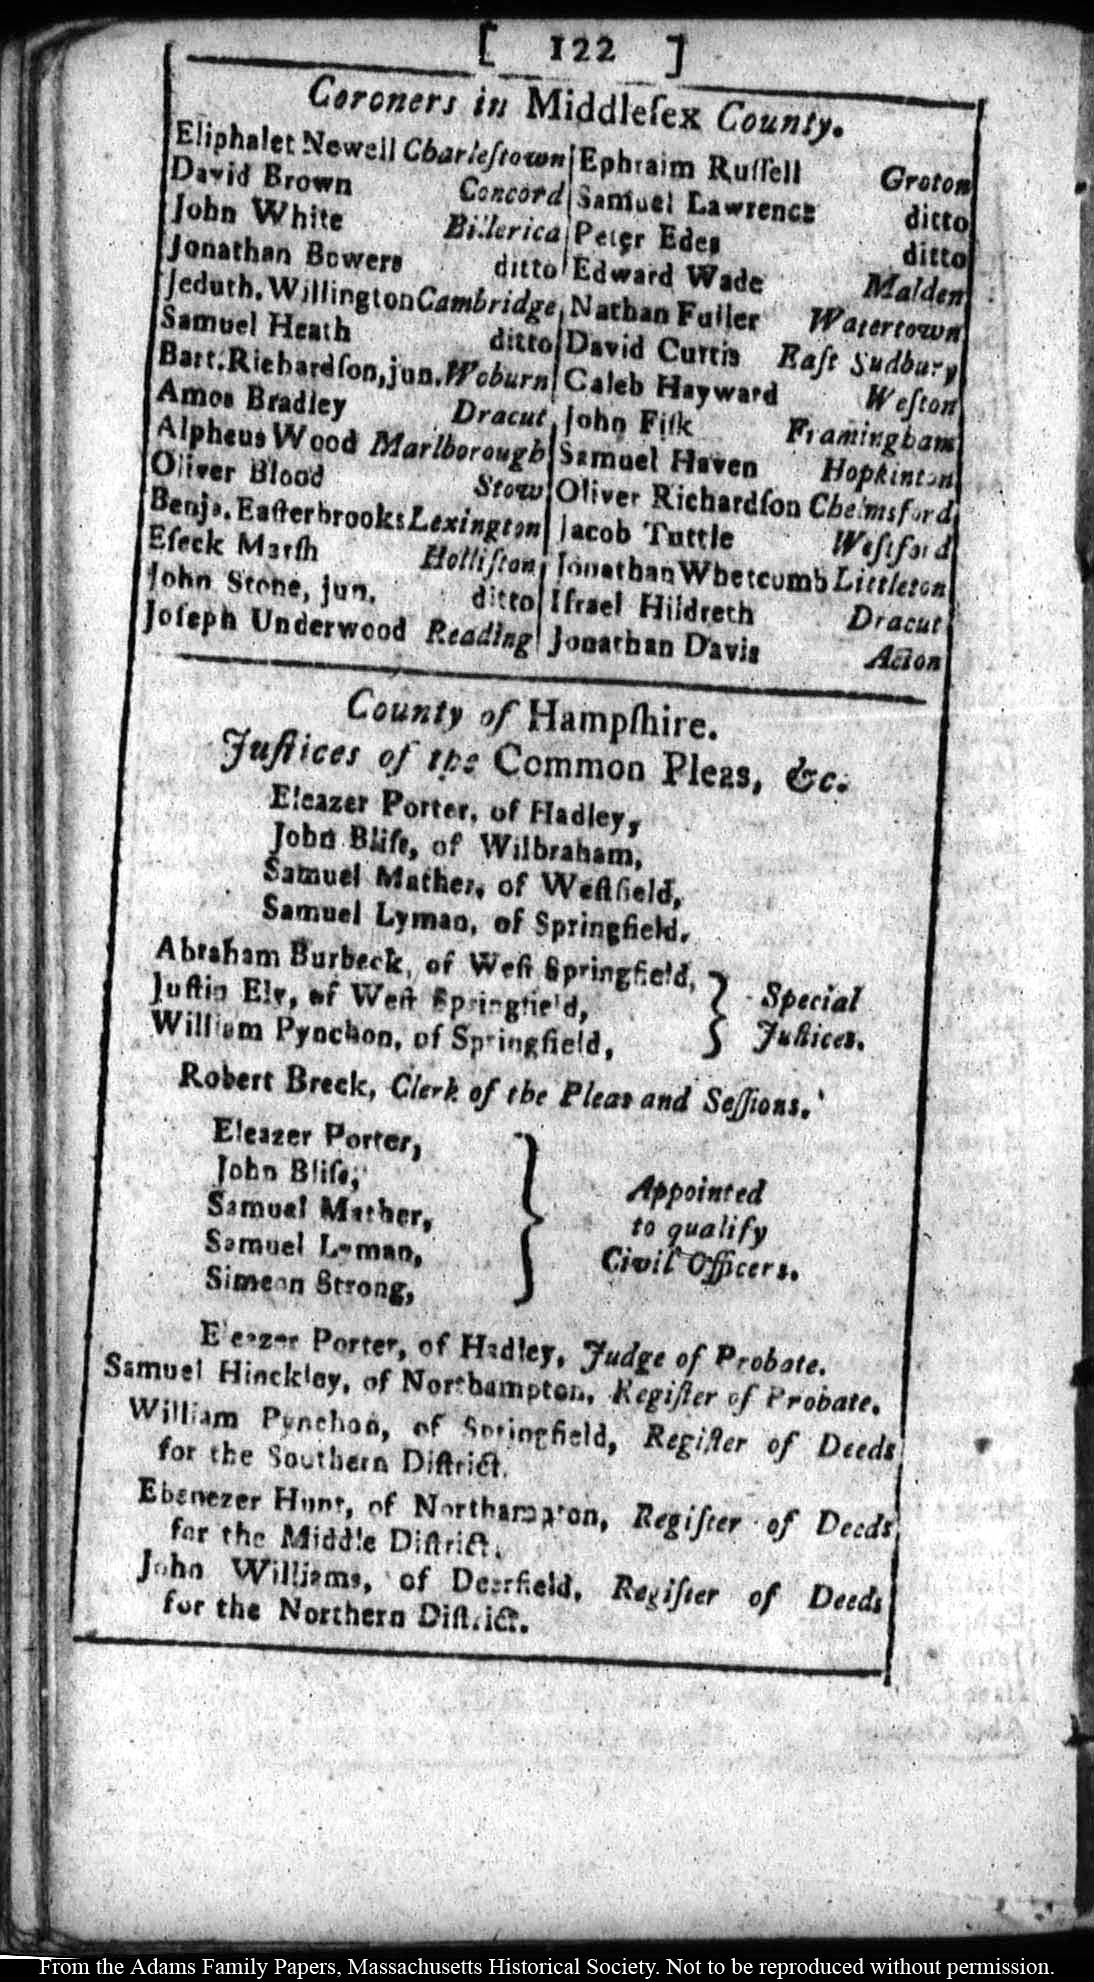 [ 122 ]
Coroners in Middleſex County.
Eliphalet Newell Charleſtown
David Brown Concord
John White Billerica
Jonathan Bowers ditto
Jeduth. Willington Cambridge
Samuel Heath ditto
Bart. Richardſon, jun. Woburn
Amos Bradley Dracut
Alpheus Wood Marlborough
Oliver Blood Stow
Benja. Eaſterbrooks Lexington
Eſeck Marſh Holliſton
John Stone, jun. ditto
Joſeph Underwood Reading
Ephraim Ruſſell Groton
Samuel Lawrence ditto
Peter Edes ditto
Edward Wade Malden
Nathan Fuller Watertown
David Curtis Eaſt Sudbury
Caleb Hayward Weſton
John Fiſk Framingham
Samuel Haven Hopkinton
Oliver Richardſon Chelmsford
Jacob Tuttle Weſtford
Jonathan Whetcomb Littleton
Iſrael Hildreth Dracut
Jonathan Davis Acton
County of Hampſhire.
Juſtices of the Common Pleas, &c.
Eleazer Porter, of Hadley,
John Bliſs, of Wilbraham,
Samuel Mather, of Weſtfield,
Samuel Lyman, of Springfield.
Abraham Burbeck, of Weſt Springfield,
Juſtin Ely, of Weſt Springfield,
William Pynchon, of Springfield,
Special
Juſtices.
Robert Breck, Clerk of the Pleas and Seſſions.
Eleazer Porter,
John Bliſs,
Samuel Mather,
Samuel Lyman,
Simeon Strong,
Appointed
to qualify
Civil Officers.
Eleazer Porter, of Hadley, Judge of Probate.
Samuel Hinckley, of Northampton, Regiſter of Probate.
William Pynchon, of Springfield, Regiſter of Deeds
for the Southern Diſtrict.
Ebenezer Hunt, of Northampton, Regiſter of Deeds
for the Middle Diſtrict.
John Williams, of Deerfield, Regiſter of Deeds
for the Northern Diſtrict.
From the Adams Family Papers, Massachusetts Historical Society. Not to be reproduced without permission.